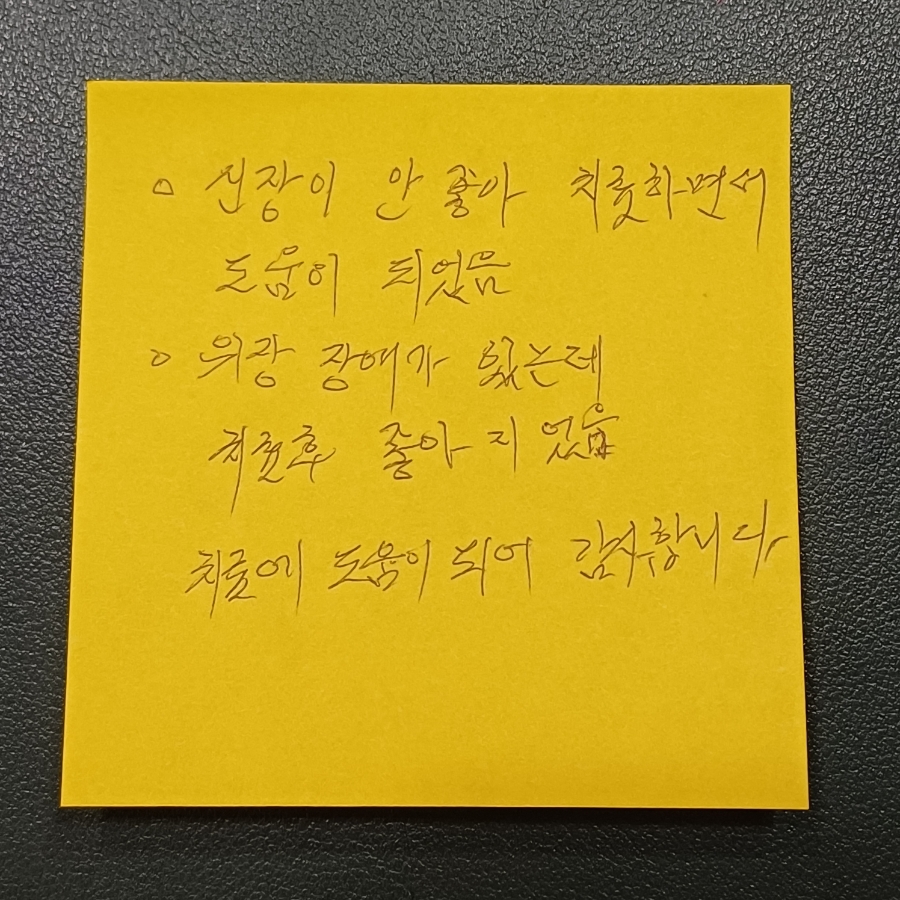 ○ 신장이 안 좋아 치료하면서
도움이 되었음
○ 위장 장애가 있는데
치료후 좋아지었음
치료에 도움이 되어 감사합니다.